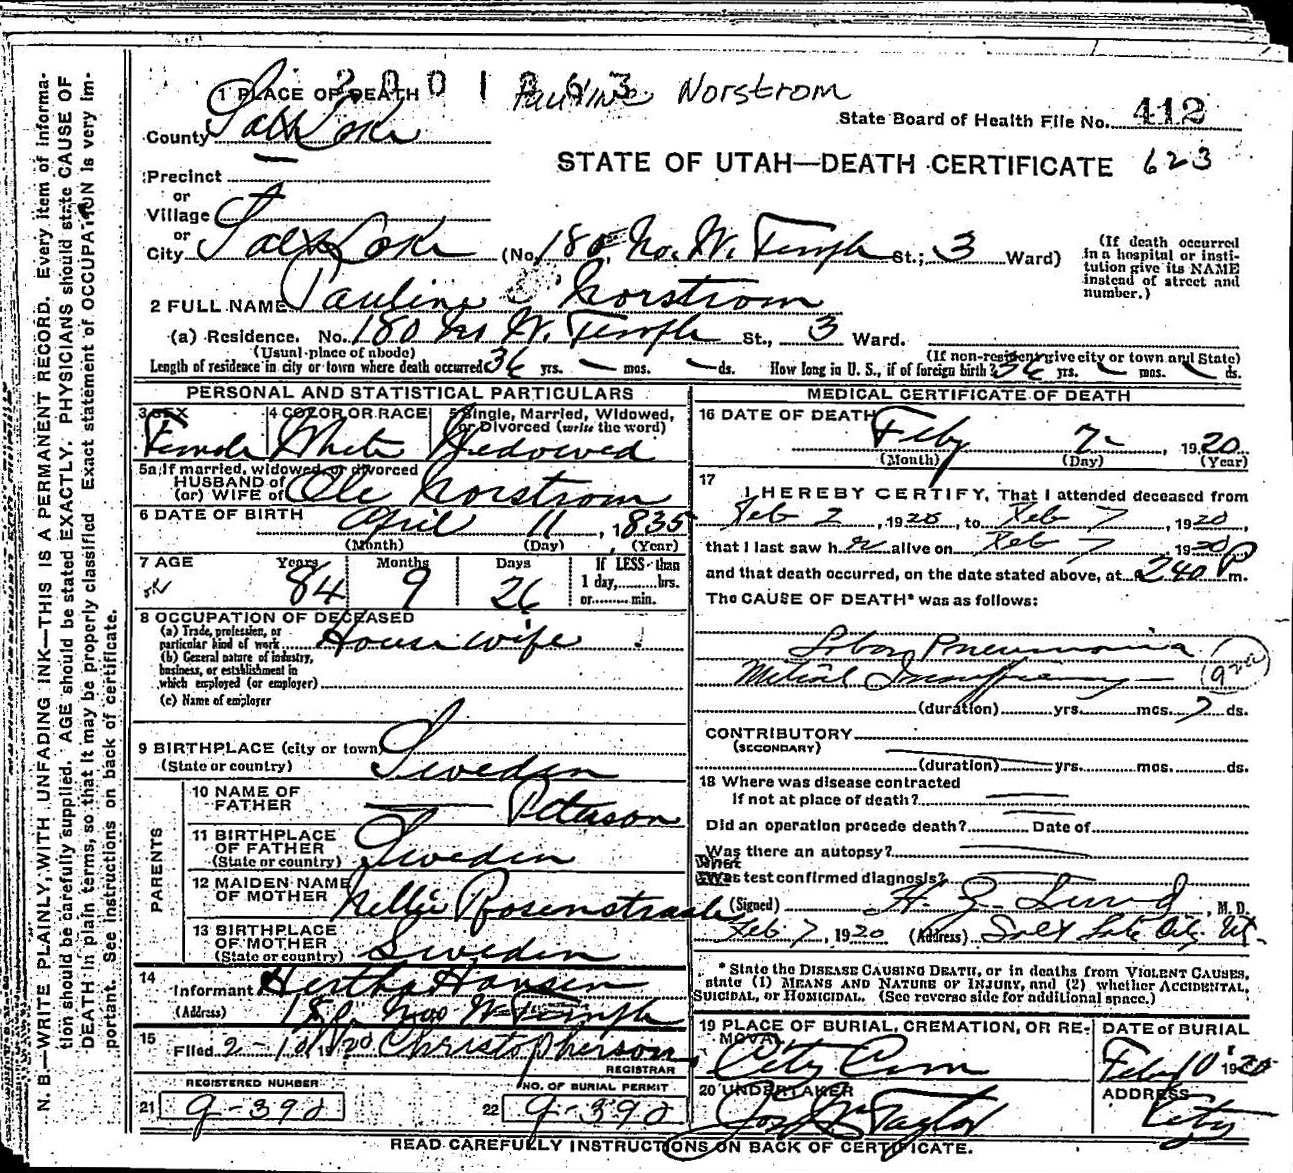 2001263 Pauline Norstrom
1 PLACE OF DEATH
County Salt Lake
State Board of Health File No. 412
STATE OF UTAH—DEATH CERTIFICATE 623
Precinct
or
Village
or
City Salt Lake (No. 180 No. W. Temple St.; 3 Ward)
(If death occurred in a hospital or institution give its NAME instead of street and number.)
2 FULL NAME Pauline Norstrom
(a) Residence. No. 180 No W. Temple St., 3 Ward.
(Usual place of abode) (If non-resident give city or town and State)
Length of residence in city or town where death occurred 36 yrs. — mos. — ds. How long in U. S., if of foreign birth? 36 yrs. — mos. — ds.
PERSONAL AND STATISTICAL PARTICULARS
3 SEX 4 COLOR OR RACE 5 Single, Married, Widowed, or Divorced (write the word)
Female White Widowed
5a If married, widowed or divorced
HUSBAND of
(or) WIFE of Ole Norstrom
6 DATE OF BIRTH April 11, 1835
(Month) (Day) (Year)
7 AGE Years Months Days If LESS than
84 9 26 1 day, hrs.
or min.
8 OCCUPATION OF DECEASED
(a) Trade, profession, or
particular kind of work House wife
(b) General nature of industry,
business, or establishment in
which employed (or employer)
(c) Name of employer
9 BIRTHPLACE (city or town)
(State or country) Sweden
PARENTS
10 NAME OF FATHER — Peterson
11 BIRTHPLACE OF FATHER
(State or country) Sweden
12 MAIDEN NAME OF MOTHER Nellie Rosenstraale
13 BIRTHPLACE OF MOTHER
(State or country) Sweden
14 Informant Hertha Hansen
(Address) 180 No W Temple
15 Filed 2-10 1920 Christopherson
REGISTRAR
REGISTERED NUMBER NO. OF BURIAL PERMIT
21 9-392 22 9-392
MEDICAL CERTIFICATE OF DEATH
16 DATE OF DEATH Feby 7—, 1920
(Month) (Day) (Year)
17 I HEREBY CERTIFY, That I attended deceased from
Feb 2, 1920, to Feb 7, 1920,
that I last saw her alive on Feb 7 1920
and that death occurred, on the date stated above, at 240 P m.
The CAUSE OF DEATH* was as follows:
Lobar Pneumonia
Mitral Insufficiency — (92a)
(duration) yrs. mos. 7 ds.
CONTRIBUTORY
(SECONDARY)
(duration) yrs. mos. ds.
18 Where was disease contracted
If not at place of death?
Did an operation precede death? Date of
Was there an autopsy?
What test confirmed diagnosis?
(Signed) H. Z. Lund, M. D.
Feb 7, 1920 (Address) Salt Lake City Ut.
* State the DISEASE CAUSING DEATH, or in deaths from VIOLENT CAUSES,
state (1) MEANS AND NATURE OF INJURY, and (2) whether ACCIDENTAL,
SUICIDAL, or HOMICIDAL. (See reverse side for additional space.)
19 PLACE OF BURIAL, CREMATION, OR REMOVAL DATE of BURIAL
City Cem Feb 10 1920
20 UNDERTAKER ADDRESS
Jos Wm Taylor City
READ CAREFULLY INSTRUCTIONS ON BACK OF CERTIFICATE.
N. B.—WRITE PLAINLY, WITH UNFADING INK—THIS IS A PERMANENT RECORD. Every item of informa-
tion should be carefully supplied. AGE should be stated EXACTLY. PHYSICIANS should state CAUSE OF
DEATH in plain terms, so that it may be properly classified Exact statement of OCCUPATION is very im-
portant. See instructions on back of certificate.